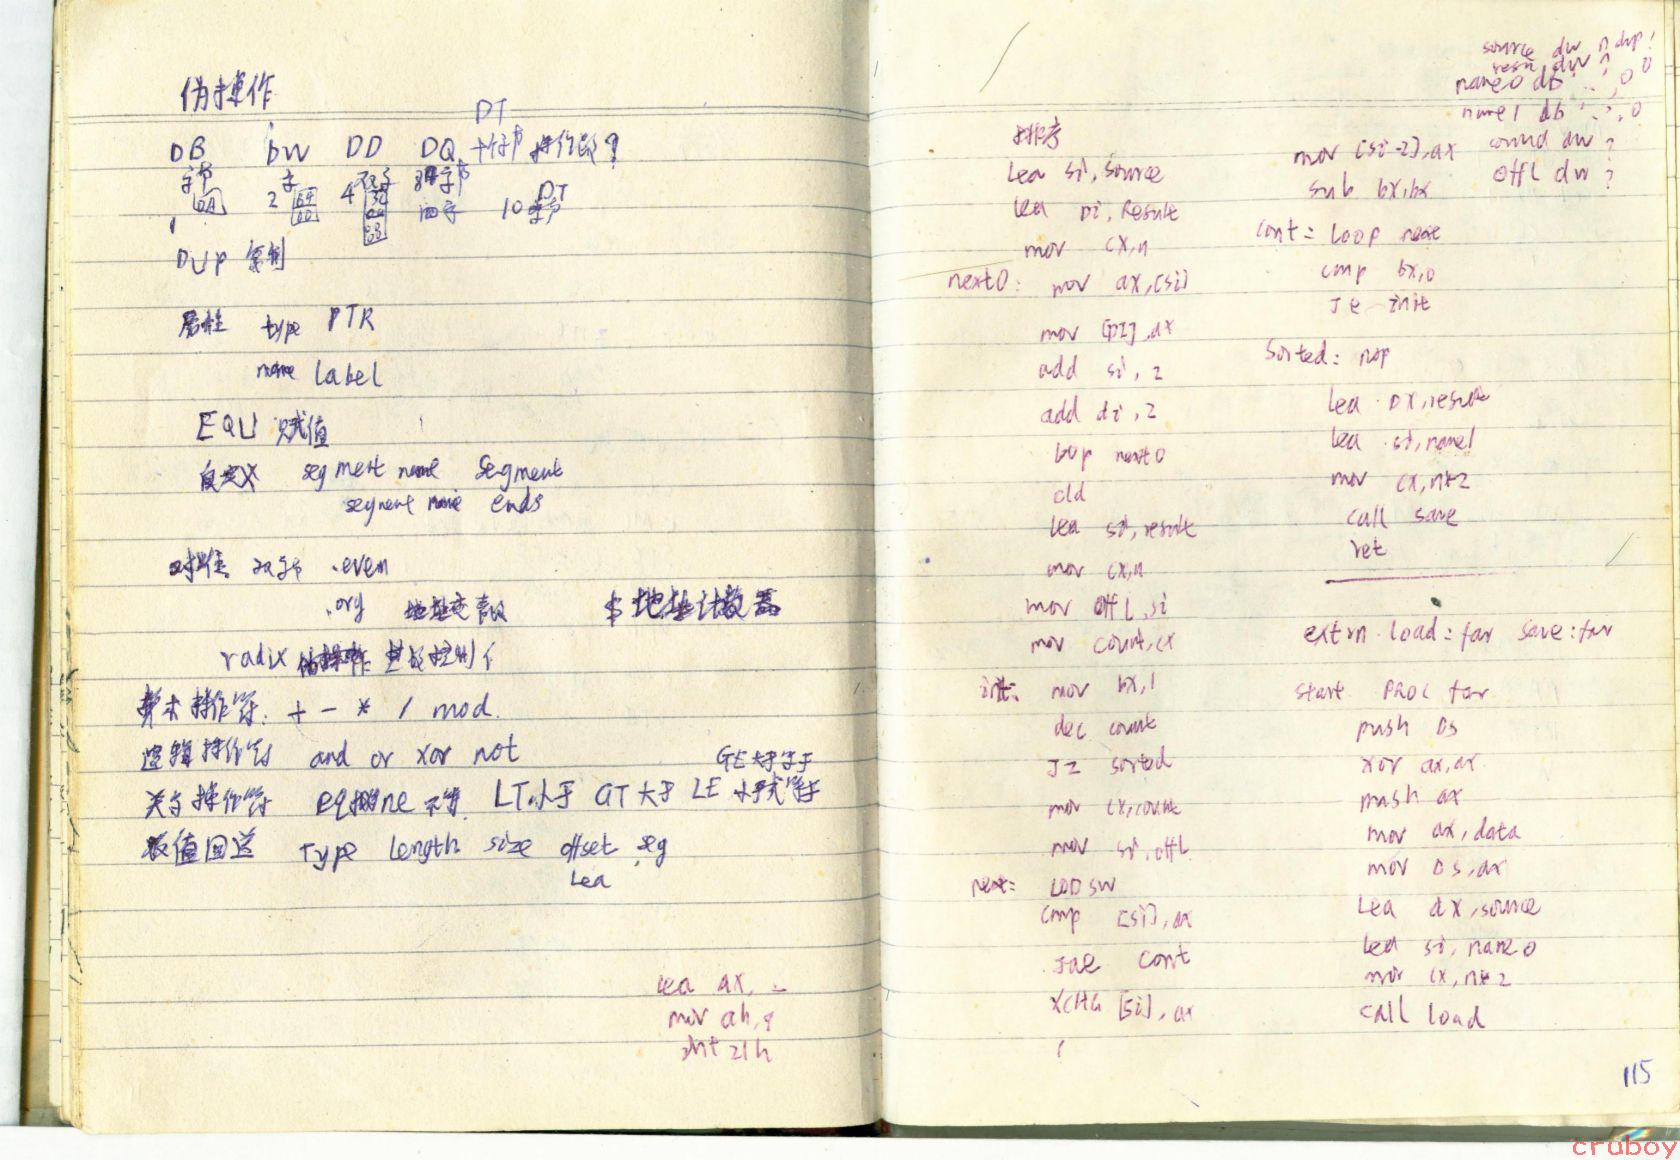 伪操作
DT
DB DW DD DQ 十字节 操作数?
字节 字 双字 8字节
0A 2 4 四字 10字节 DT
1
DUP 复制
属性 type PTR
name Label
EQU 赋值
自定义 segment name Segment
segment name ends
对准 双字节 .even
.org 地址 $ 地址计数器
radix 伪操作 基数控制
算术操作符: + - * / mod.
逻辑操作符 and or xor not
GE 大于等于
关系操作符 eq 相等 ne 不等. LT 小于 GT 大于 LE 小于或等于
数值回送 Type Length size offset seg
Lea
lea ax,
mov ah,9
int 21h
source dw n dup ?
result dw n
name0 db ' ',0
name1 db ' ',0
count dw ?
offL dw ?
排序
Lea si, source
Lea DI, Result
mov cx,n
next0: mov ax,[si]
mov [DI],ax
add si, 2
add di, 2
loop next0
cld
Lea si, result
mov cx,n
mov offL,si
mov count,cx
init: mov bx,1
dec count
JZ sorted
mov cx,count
mov si,offL
next: LODSW
cmp [si],ax
Jae cont
XCHG [si],ax
mov [si-2],ax
sub bx,bx
cont: Loop next
cmp bx,0
Je init
Sorted: nop
Lea DX,result
Lea si,name1
mov cx,n*2
call save
ret
extrn load:far save:far
start PROC far
push DS
xor ax,ax
push ax
mov ax,data
mov DS,ax
Lea dx,source
Lea si, name0
mov cx, n*2
call load
115
cruboy